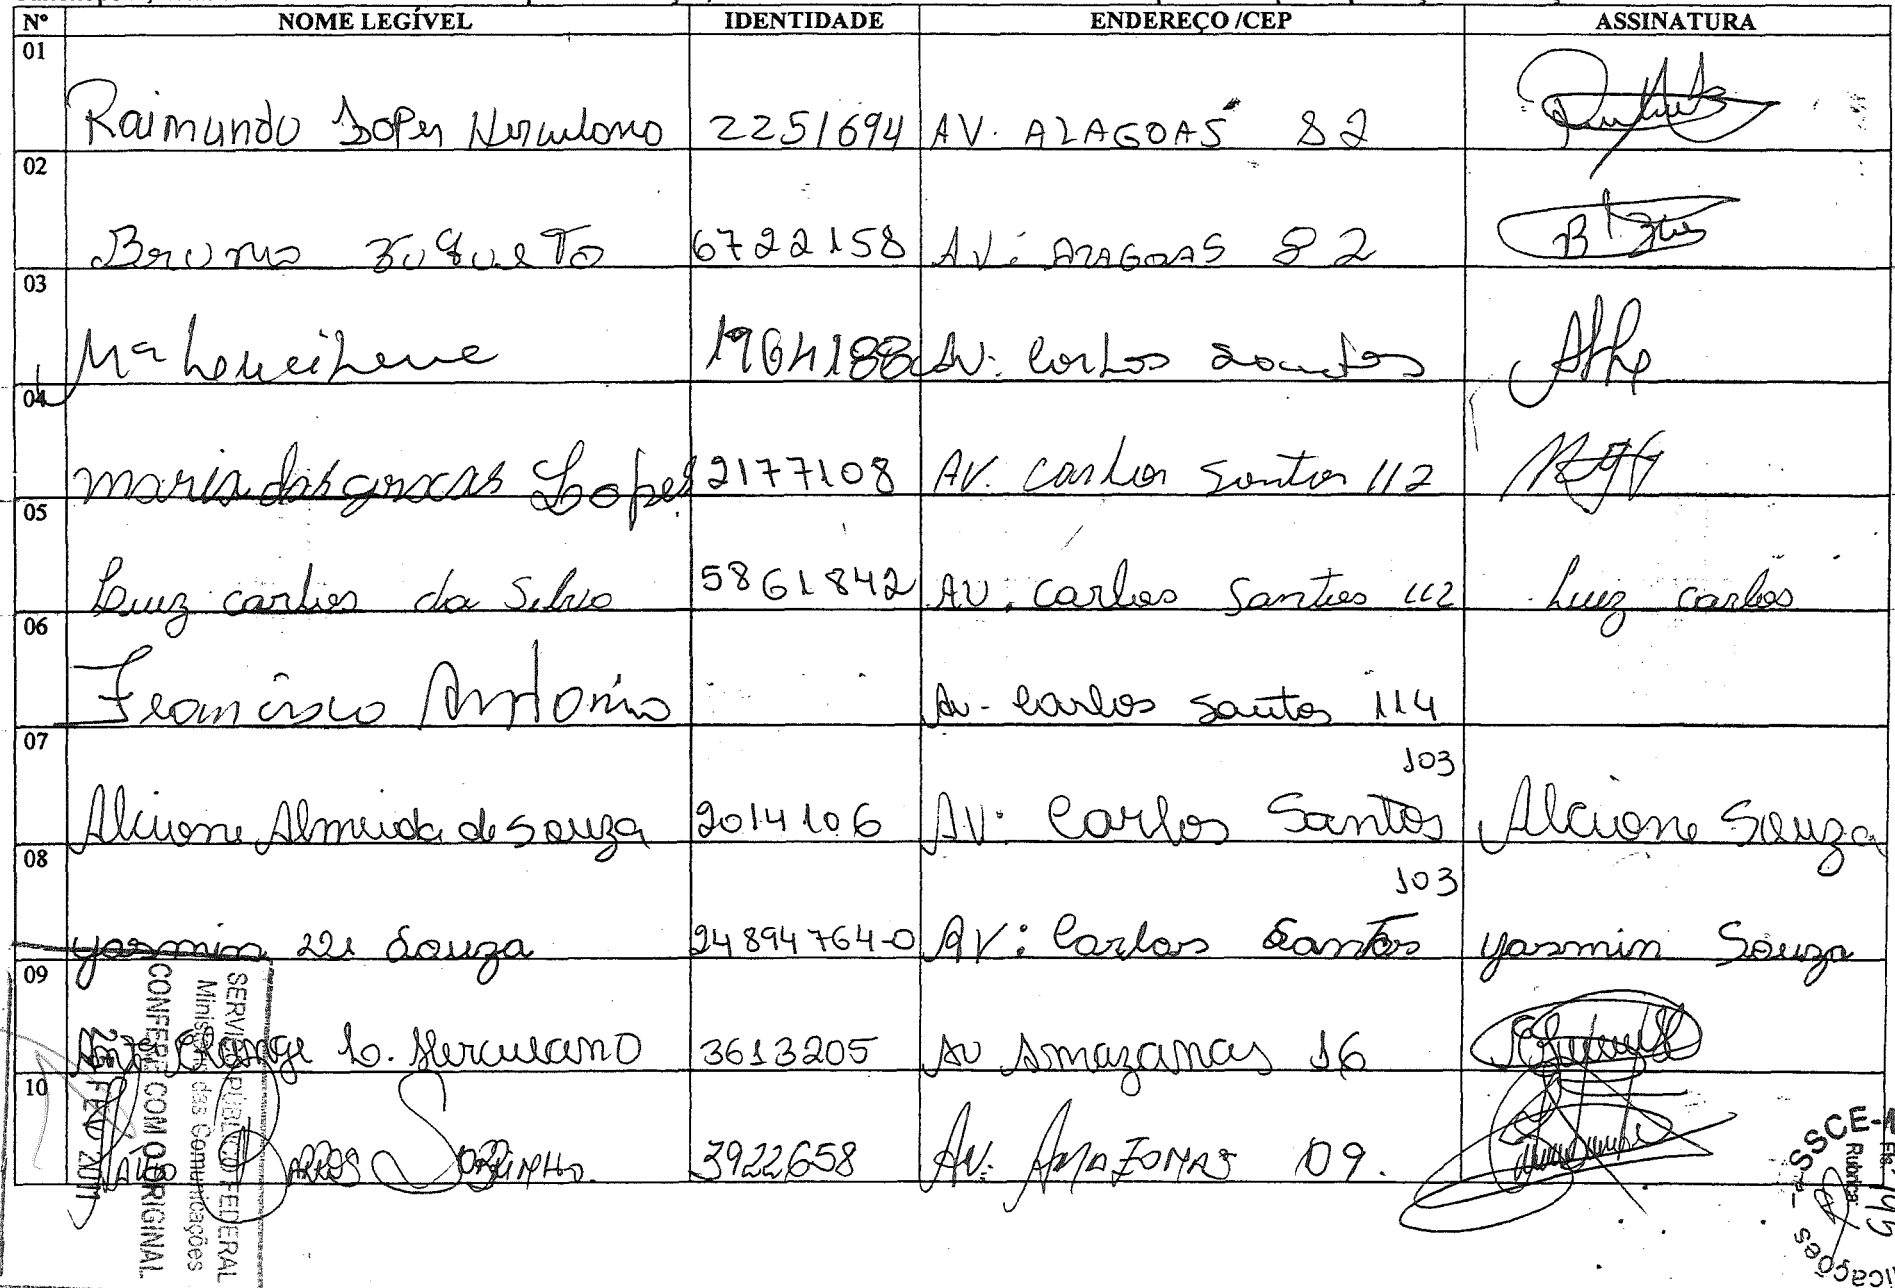 Nº NOME LEGÍVEL IDENTIDADE ENDEREÇO /CEP ASSINATURA
01 Raimundo Lopes Herculano 2251694 AV. ALAGOAS 82
02 Bruno 6722158 AV: ALAGOAS 82
03 Mª Loucilene 1964188 AV. Carlos Santos
04 maria das graças Lopes 2177108 AV. Carlos Santos 112
05 Luiz carlos da Silva 5861842 AV. carlos Santos 112 Luiz carlos
06 Francisco Antonio Av- Carlos Santos 114
07 Alcione Almeida de Souza 2014106 AV: Carlos Santos 103 Alcione Souza
08 yasmin Souza 24894764-0 AV: Carlos Santos 103 yasmin Souza
09 L. Herculano 3613205 AV Amazanas 16
10 BARROS SOBRINHO. 3922658 AV. AMAZONAS 09.
SERVIÇO PÚBLICO FEDERAL
Ministério das Comunicações
CONFERE COM O ORIGINAL
FEV 2011
SSCE
Fls
Rubrica